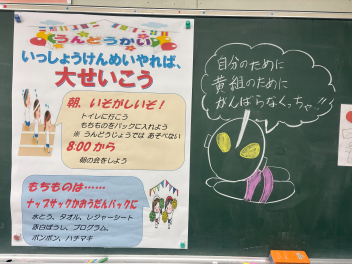 うんどうかい
いっしょうけんめいやれば、
大せいこう
朝、いそがしいぞ！
トイレに行こう
もちものをパックに入れよう
※うんどうじょうでは あそべない
8:00から
朝の会をしよう
もちものは……
ナップサックかおうだんバックに
水とう、タオル、レジャーシート
赤白ぼうし、プログラム、
ポンポン、ハチマキ
自分のために
黄組のために
がんばらなくっちゃ!!